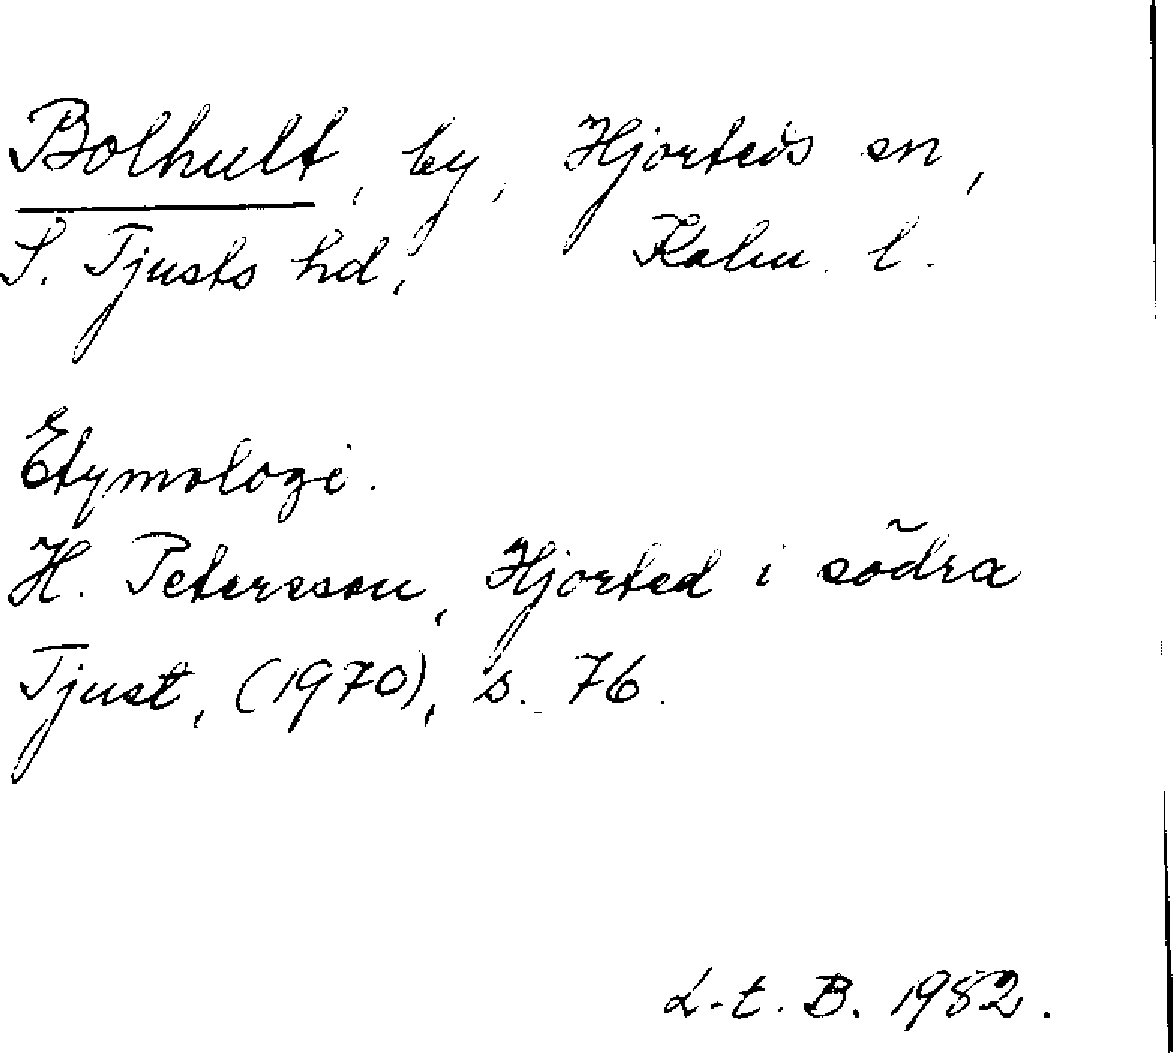 Bolhult, by, Hjorteds sn,
S. Tjusts hd, Kalm. l.
Etymologi.
H. Petersson, Hjorted i södra
Tjust, (1970), s. 76.
L.t. B. 1982.